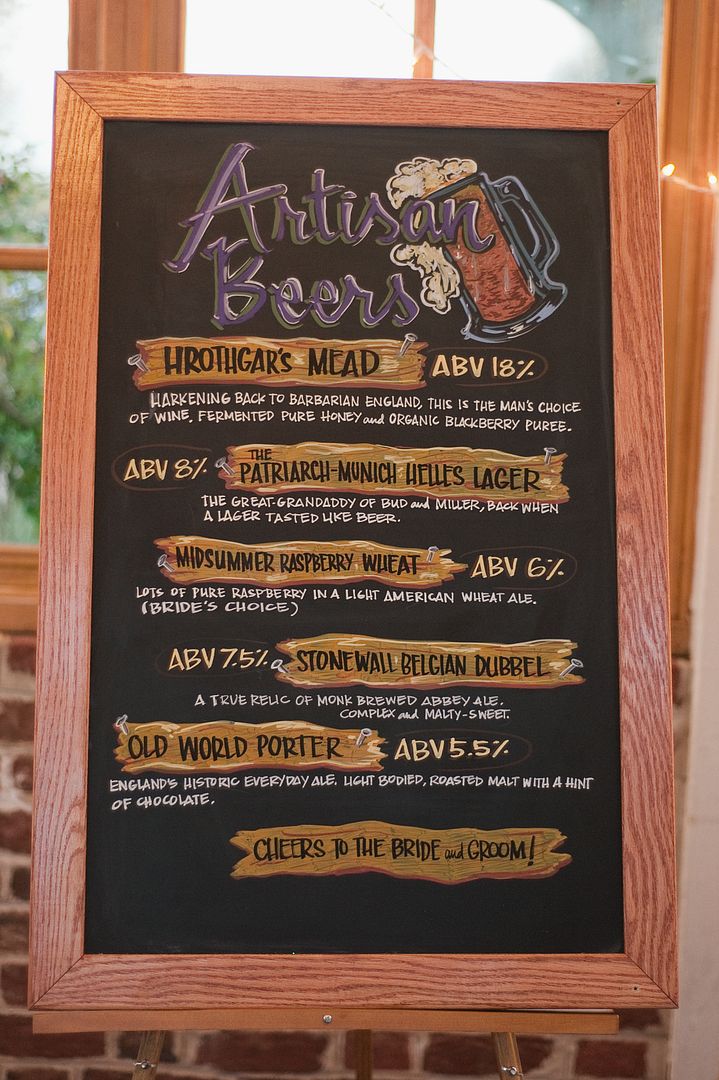 Artisan
Beers
HROTHGAR'S MEAD ABV 18%
HARKENING BACK TO BARBARIAN ENGLAND, THIS IS THE MAN'S CHOICE
OF WINE, FERMENTED PURE HONEY and ORGANIC BLACKBERRY PUREE.
ABV 8% THE
PATRIARCH-MUNICH HELLES LAGER
THE GREAT-GRANDADDY OF BUD and MILLER, BACK WHEN
A LAGER TASTED LIKE BEER.
MIDSUMMER RASPBERRY WHEAT ABV 6%
LOTS OF PURE RASPBERRY IN A LIGHT AMERICAN WHEAT ALE.
(BRIDE'S CHOICE)
ABV 7.5% STONEWALL BELGIAN DUBBEL
A TRUE RELIC OF MONK BREWED ABBEY ALE.
COMPLEX and MALTY-SWEET.
OLD WORLD PORTER ABV 5.5%
ENGLAND'S HISTORIC EVERYDAY ALE. LIGHT BODIED, ROASTED MALT WITH A HINT
OF CHOCOLATE.
CHEERS TO THE BRIDE and GROOM!